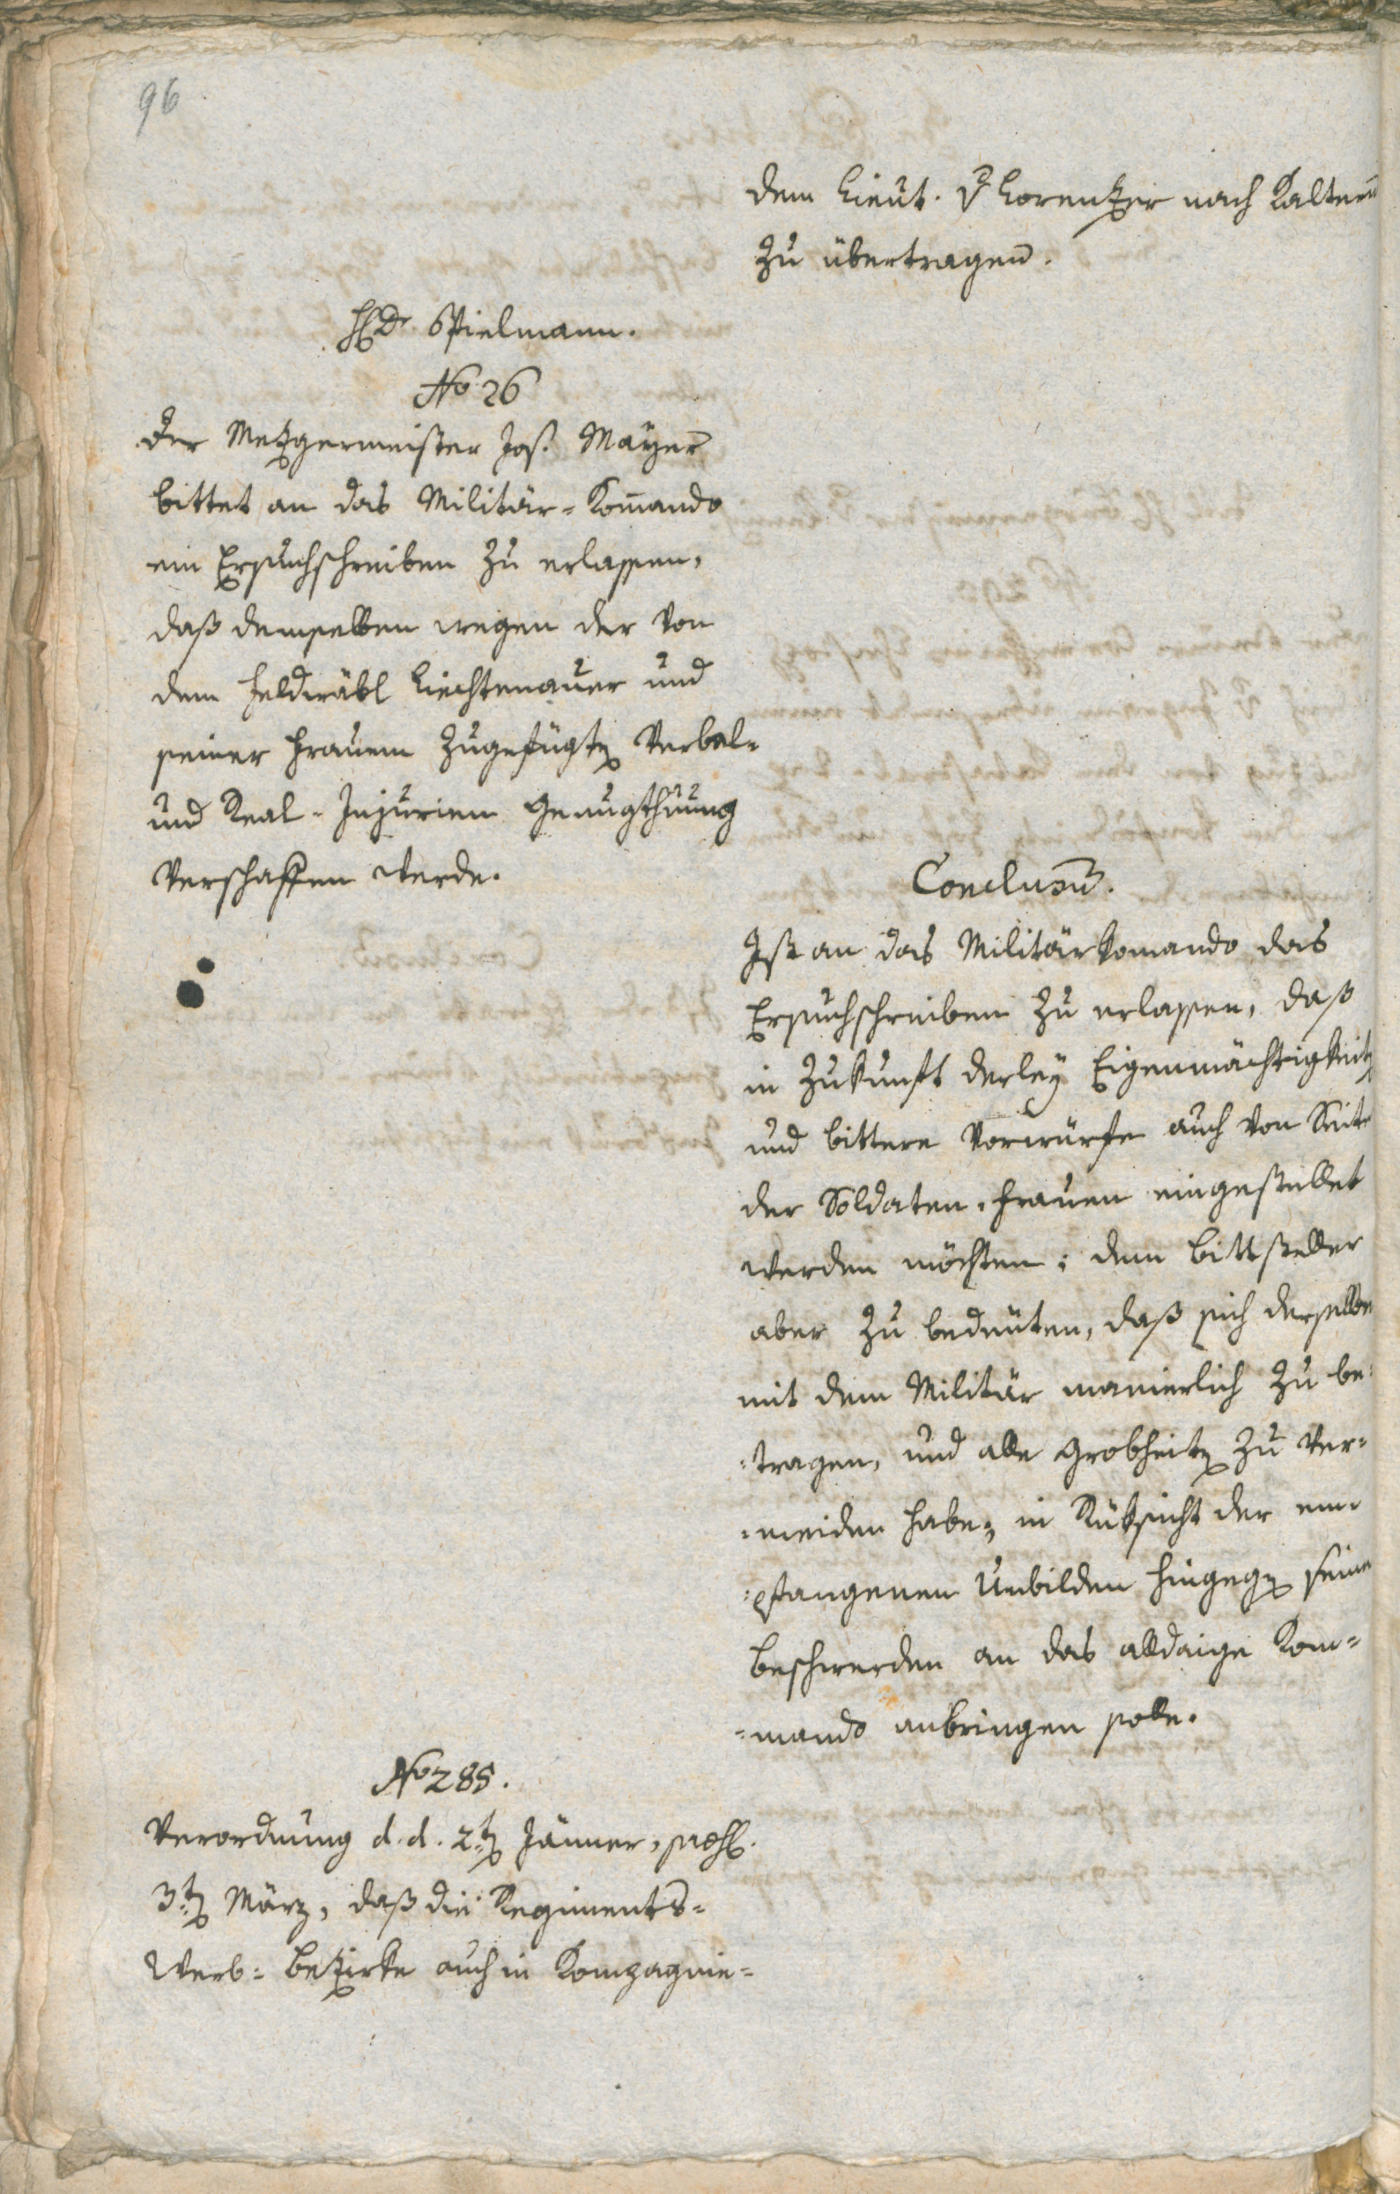 96
dem Lieut. v Lorenzer nach Kaltern
zu übertragen.
H Dr. Spielmann.
No 26
Der Metzgermeister Jos. Mayer
bittet an das Militär-Komando
ein Ersuchschreiben zu erlassen,
daß demselben wegen der von
dem Feldwäbl Liechtenauer und
seiner Frauen zugefügten Verbal-
und Real-Injurien Genugthuung
verschaffen werde.
Conclusum.
Ist an das Militärkomando das
Ersuchschreiben zu erlassen, daß
in Zukunft derley Eigenmächtigkeiten
und bittere Vorwürfe auch von Seite
der Soldaten-Frauen eingestellet
werden möchten; dem Bittsteller
aber zu bedeuten, daß sich derselbe
mit dem Militär manierlich zu be-
-tragen, und alle Grobheiten zu ver-
-meiden habe; in Rüksicht der em-
-pfangenen Unbilden hingegen seine
Beschwerden an das alldaige Kom-
-mando anbringen solle.
No 285.
Verordnung d. d. 2ten Jänner,
3ten März, daß die Regiments-
Werb-Bezirke auch in Kompagnie-